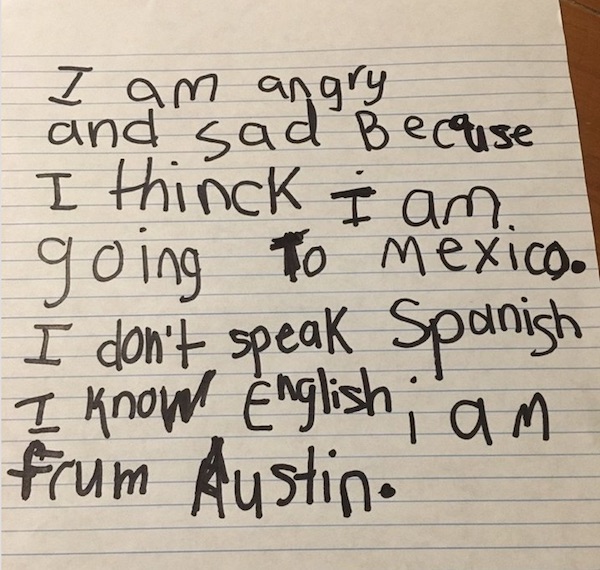 I am angry
and sad Because
I thinck I am
going To mexico.
I don't speak Spanish
I know English i am
frum Austin.